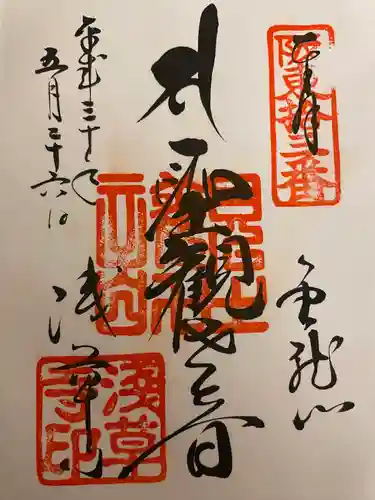 奉拝
坂東拾三番
金龍山
聖観世音
浅草寺
浅草寺印
平成三十年
五月二十六日